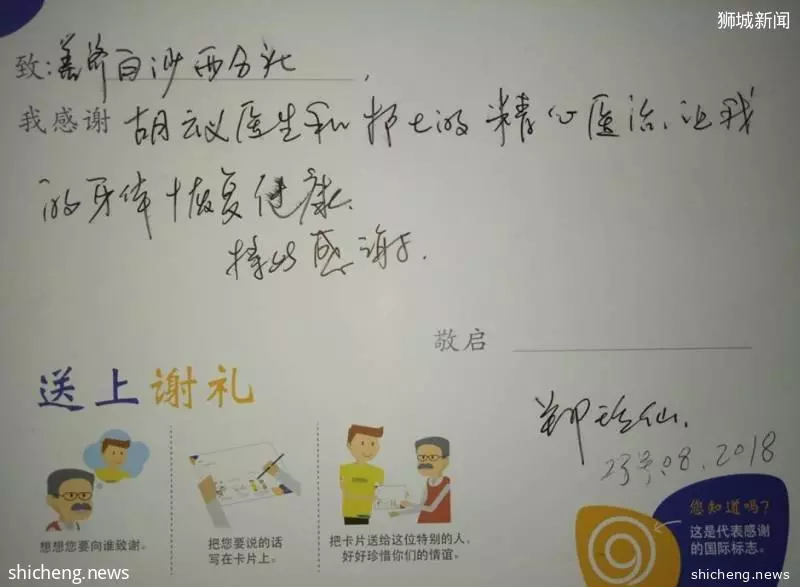 狮城新闻
致:善济白沙西分社,
我感谢 胡云议医生和护士的精心医治,让我
的牙体恢复健康.
特此感谢.
敬启
送上谢礼
郑珍仙.
23号.08.2018
想想您要向谁致谢。
把您要说的话
写在卡片上。
把卡片送给这位特别的人,
好好珍惜你们的情谊。
您知道吗?
这是代表感谢
的国际标志。
shicheng.news
shicheng.news